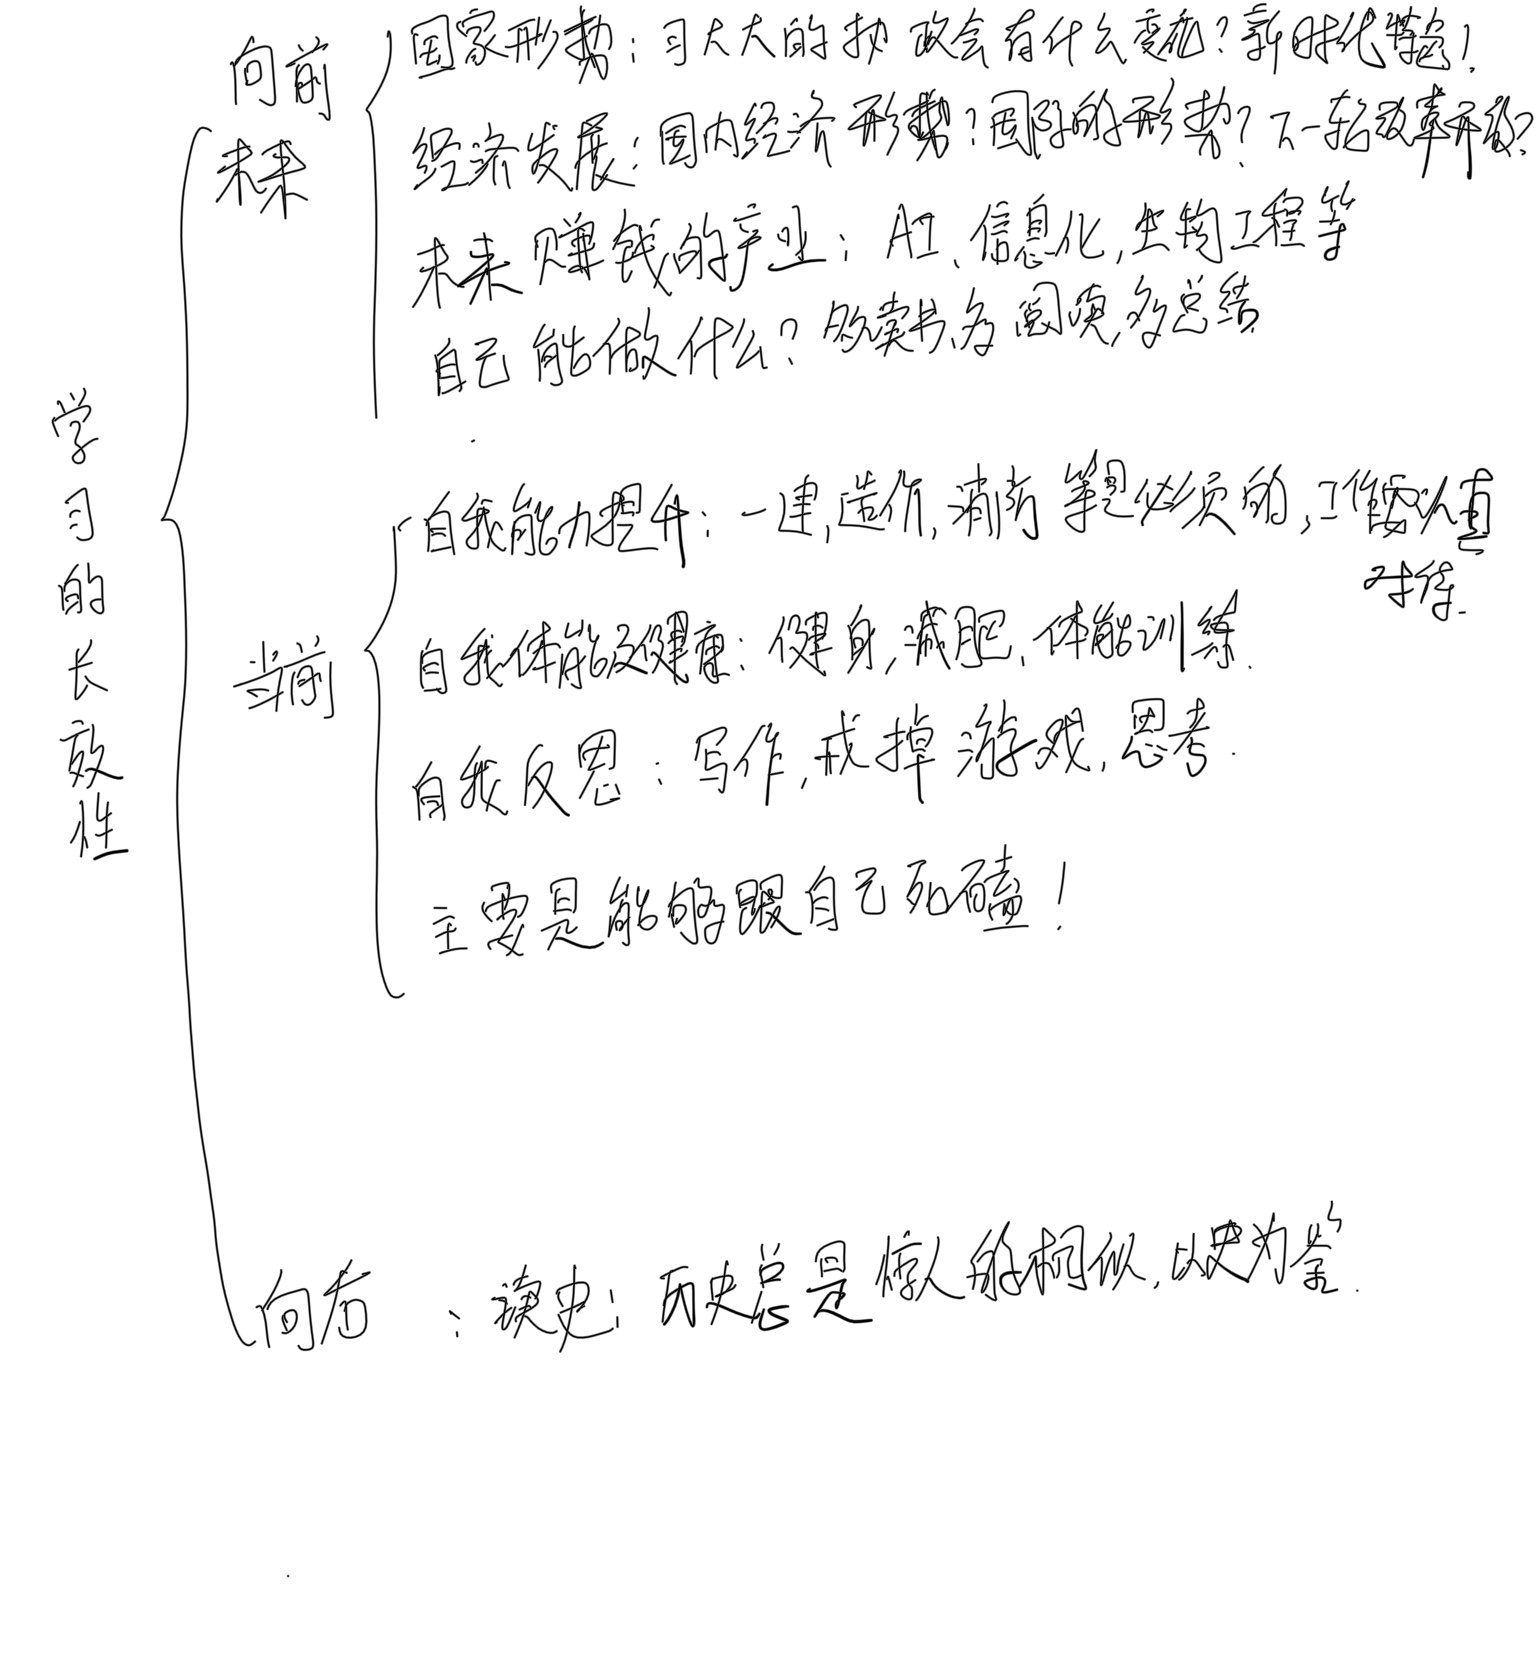 学习的长效性
向前
未来
国家形势：习大大的执政会有什么变化？新时代特色！
经济发展：国内经济形势？国际的形势？下一轮改革开放？
未来赚钱的产业：AI、信息化，生物工程等
自己能做什么？多读书，多阅读，多总结
当前
自我能力提升：一建，造价，消防等是必须的，工作要认真
对待.
自我体能及健康：健身，减肥，体能训练.
自我反思：写作，戒掉游戏，思考.
主要是能够跟自己死磕！
向后：读史：历史总是惊人的相似，以史为鉴.